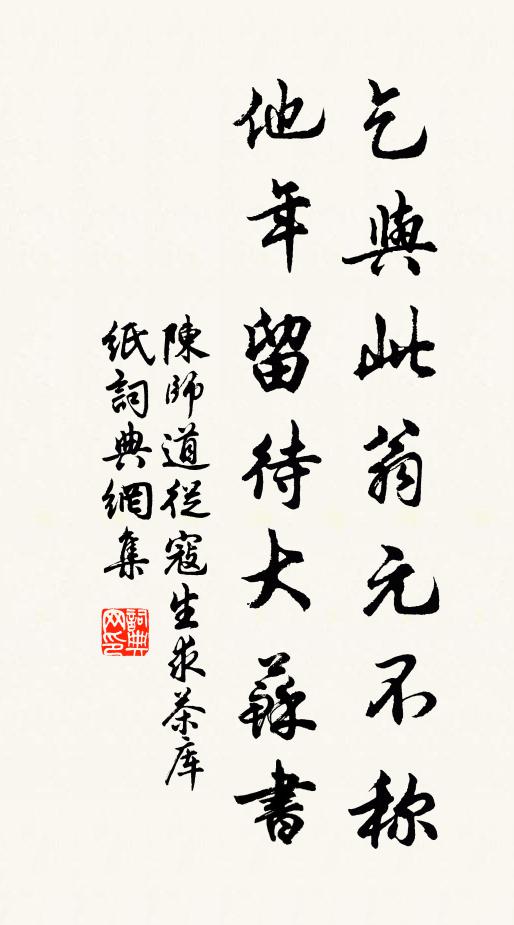 乞與此翁元不称
他年留待大蘇書
陳師道從寇生求茶库
紙詞典網集
詞典
网印